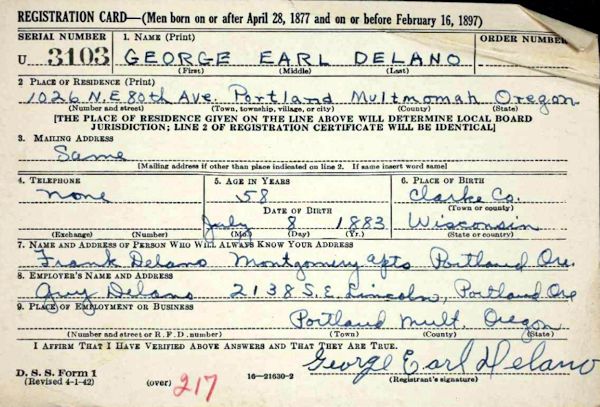 REGISTRATION CARD—(Men born on or after April 28, 1877 and on or before February 16, 1897)
SERIAL NUMBER 1. NAME (Print) ORDER NUMBER
U 3103 GEORGE EARL DELANO
(First) (Middle) (Last)
2 PLACE OF RESIDENCE (Print)
1026 N.E. 80th Ave. Portland Multmomah Oregon
(Number and street) (Town, township, village, or city) (County) (State)
[THE PLACE OF RESIDENCE GIVEN ON THE LINE ABOVE WILL DETERMINE LOCAL BOARD
JURISDICTION; LINE 2 OF REGISTRATION CERTIFICATE WILL BE IDENTICAL]
3. MAILING ADDRESS
Same
[Mailing address if other than place indicated on line 2. If same insert word same]
4. TELEPHONE 5. AGE IN YEARS 6. PLACE OF BIRTH
None 58 Clarke Co.
DATE OF BIRTH (Town or county)
July 8 1883 Wisconsin
(Exchange) (Number) (Mo.) (Day) (Yr.) (State or country)
7. NAME AND ADDRESS OF PERSON WHO WILL ALWAYS KNOW YOUR ADDRESS
Frank Delano Montgomery Apts Portland Ore.
8. EMPLOYER'S NAME AND ADDRESS
Guy Delano 2138 S.E. Lincoln, Portland Ore
9. PLACE OF EMPLOYMENT OR BUSINESS
Portland Mult. Oregon
(Number and street or R. F. D. number) (Town) (County) (State)
I AFFIRM THAT I HAVE VERIFIED ABOVE ANSWERS AND THAT THEY ARE TRUE.
George Earl Delano
D. S. S. Form 1
(Revised 4-1-42) (over) 217 16—21630-2 (Registrant's signature)